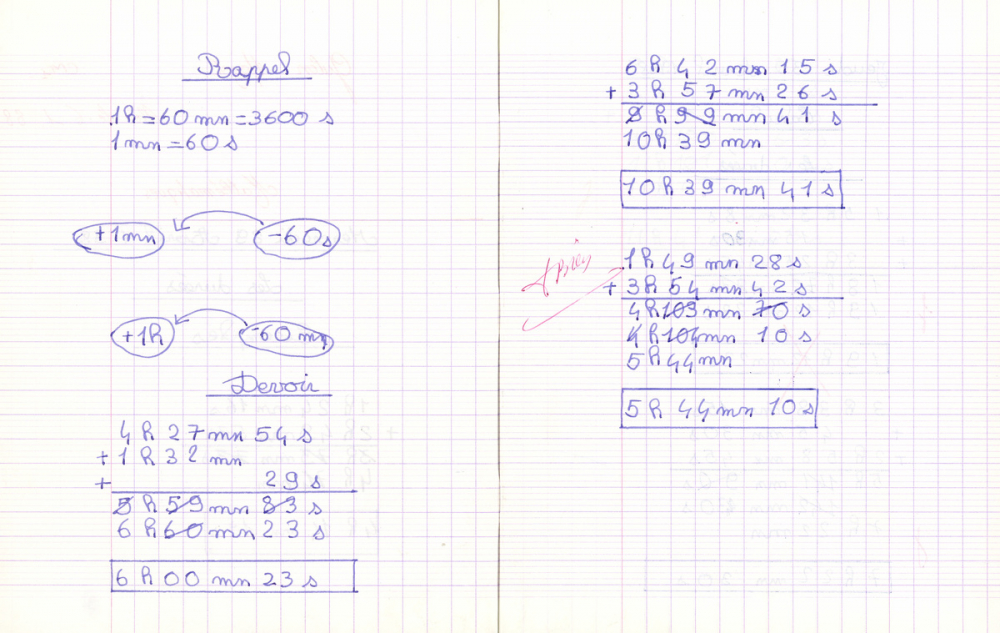 Rappel
1h = 60 mn = 3600 s
1 mn = 60 s
+1mn -60s
+1h -60 mn
Devoir
4 h 27 mn 54 s
+ 1 h 32 mn
+ 29 s
5 h 59 mn 83 s
6 h 60 mn 23 s
6 h 00 mn 23 s
6 h 42 mn 15 s
+ 3 h 57 mn 26 s
9 h 99 mn 41 s
10h 39 mn
10 h 39 mn 41 s
1h 49 mn 28 s
+ 3h 54 mn 42 s
4h 103 mn 70 s
4 h 104 mn 10 s
5 h 44 mn
5 h 44 mn 10 s